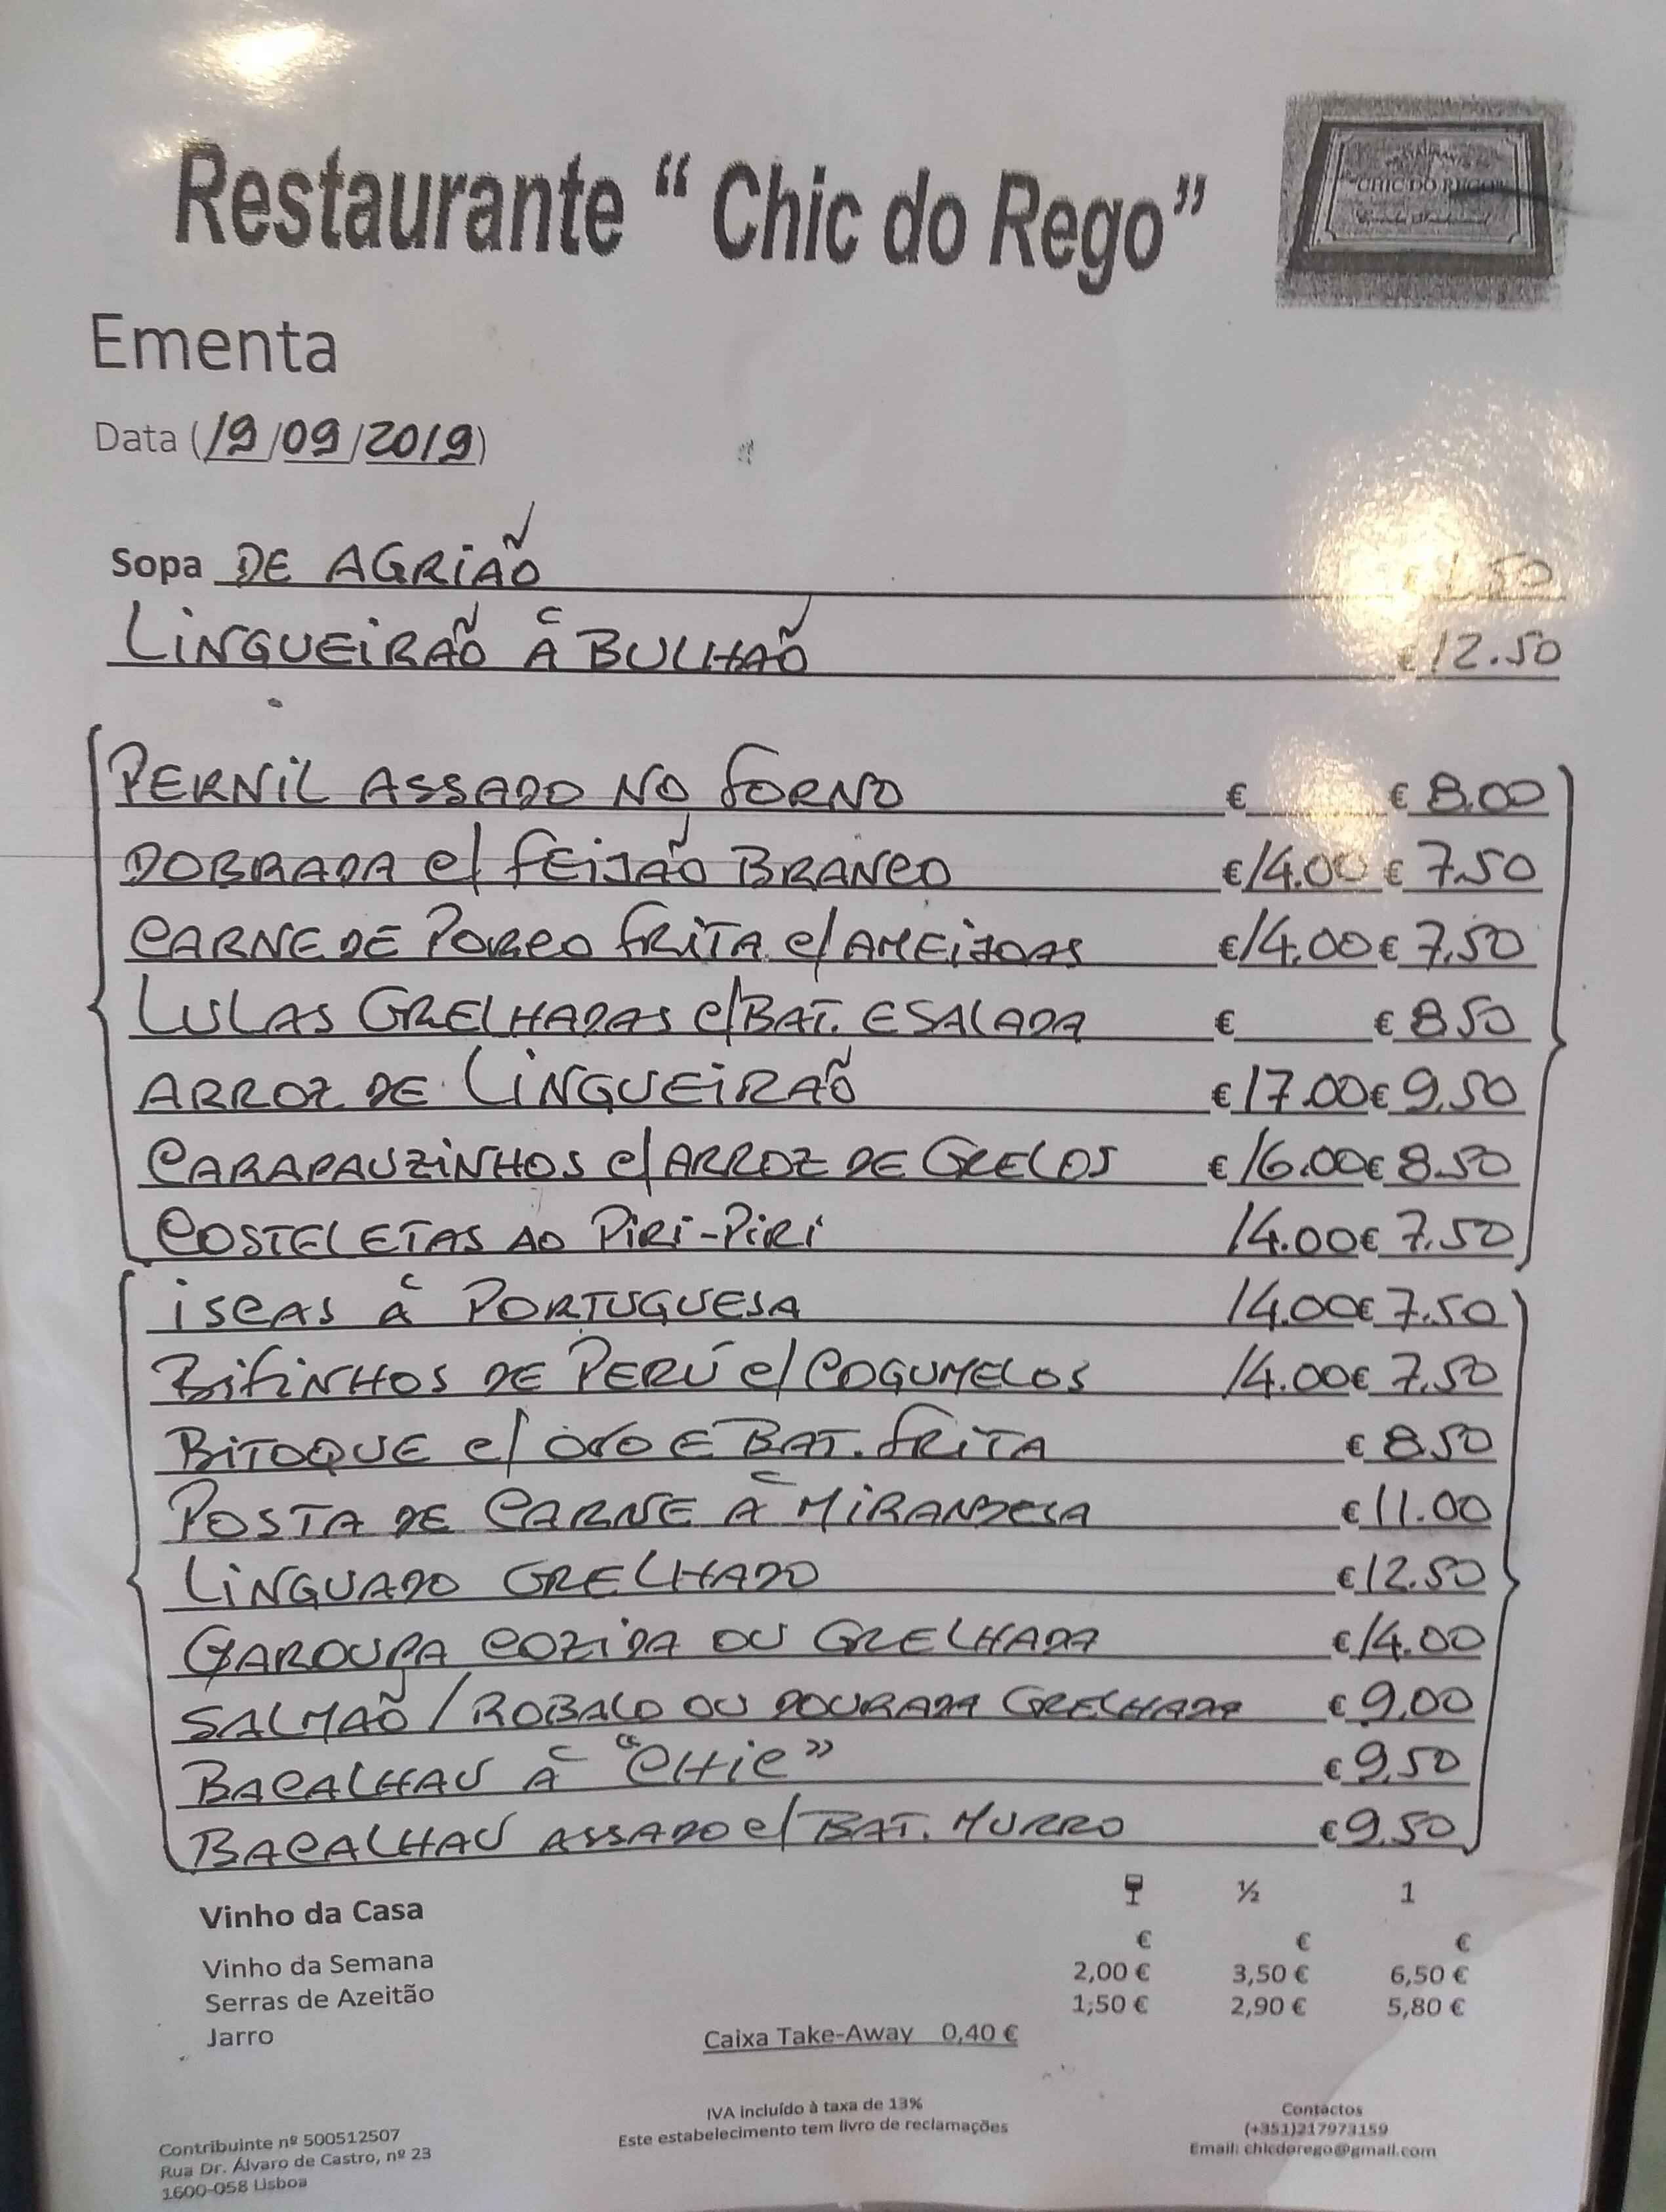 Restaurante " Chic do Rego"
"CHIC DO REGO"
Ementa
Data (19/09/2019)
Sopa DE AGRIÃO € 1.50
LINGUEIRÃO À BULHÃO € 12.50
PERNIL ASSADO NO FORNO € € 8.00
DOBRADA C/ FEIJÃO BRANCO € 14.00 € 7.50
CARNE DE PORCO FRITA C/ AMEIJOAS € 14.00 € 7.50
LULAS GRELHADAS C/ BAT. E SALADA € € 8.50
ARROZ DE LINGUEIRÃO € 17.00 € 9.50
CARAPAUZINHOS C/ ARROZ DE GRELOS € 16.00 € 8.50
COSTELETAS AO PIRI-PIRI 14.00 € 7.50
ISCAS À PORTUGUESA 14.00 € 7.50
BIFINHOS DE PERÚ C/ COGUMELOS 14.00 € 7.50
BITOQUE C/ OVO E BAT. FRITA € 8.50
POSTA DE CARNE À MIRANDELA € 11.00
LINGUADO GRELHADO € 12.50
GAROUPA COZIDA OU GRELHADA € 14.00
SALMÃO / ROBALO OU DOURADA GRELHADA € 9.00
BACALHAU À "CHIC" € 9.50
BACALHAU ASSADO C/ BAT. MURRO € 9.50
Vinho da Casa ½ 1
€ € €
Vinho da Semana 2,00 € 3,50 € 6,50 €
Serras de Azeitão 1,50 € 2,90 € 5,80 €
Jarro
Caixa Take-Away 0,40 €
IVA incluído à taxa de 13%
Este estabelecimento tem livro de reclamações
Contribuinte nº 500512507
Rua Dr. Álvaro de Castro, nº 23
1600-058 Lisboa
Contactos
(+351)217973159
Email: chicdorego@gmail.com